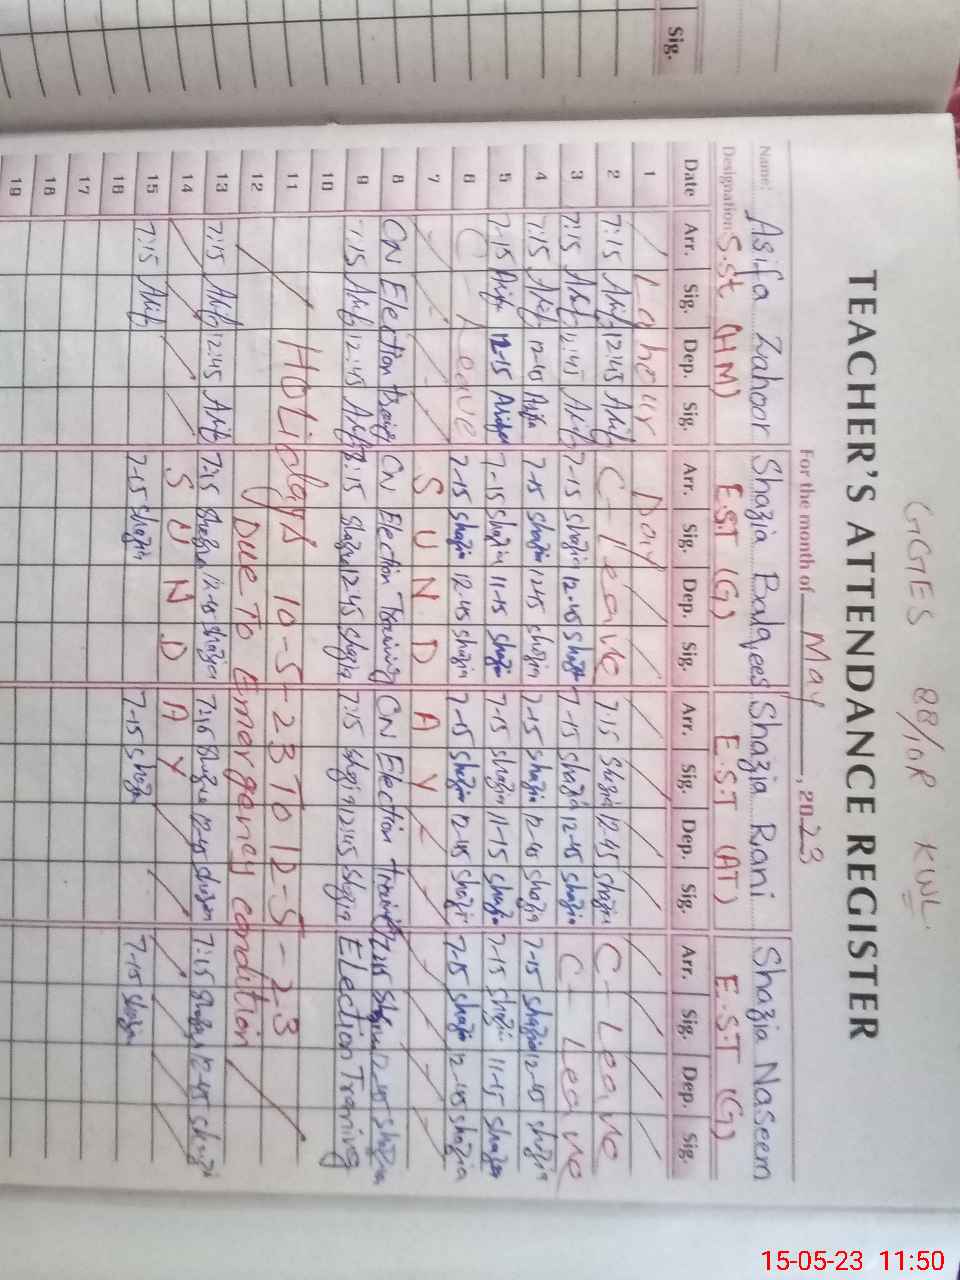 Sig.
GGES 88/10R KWL.
TEACHER'S ATTENDANCE REGISTER
For the month of May, 2023
Name: Asifa Zahoor Shazia Balqees Shazia Rani Shazia Naseem
Designation: S.St (HM) E.S.T (G) E.S.T (AT) E.S.T (G)
Date Arr. Sig. Dep. Sig. Arr. Sig. Dep. Sig. Arr. Sig. Dep. Sig. Arr. Sig. Dep. Sig.
1 Labour Day
2 7:15 12:45 C-Leave 7:15 Shazia 12-45 Shazia C-Leave
3 7:15 12:45 7-15 Shazia 12-45 Shazia 7-15 Shazia 12-45 Shazia C-Leave
4 7:15 12-45 7-15 Shazia 12-45 Shazia 7-15 Shazia 12-45 Shazia 7-15 Shazia 12-45 Shazia
5 7-15 12-15 7-15 Shazia 11-15 Shazia 7-15 Shazia 11-15 Shazia 7-15 Shazia 11-15 Shazia
6 C-Leave 7-15 Shazia 12-45 Shazia 7-15 Shazia 12-45 Shazia 7-15 Shazia 12-45 Shazia
7 SUNDAY
8 ON Election ON Election Training ON Election 7:15 12-45 Shazia
9 7:15 12:45 8:15 Shazia 12-45 Shazia 7:15 Shazia 12:45 Shazia Election Training
10
11 HOLidays 10-5-23 TO 12-5-23
12 DUE TO Emergency condition
13 7:15 12:45 7:15 Shazia 12-45 Shazia 7:15 Shazia 12-45 Shazia 7:15 Shazia 12-45 Shazia
14 SUNDAY
15 7:15 7-15 Shazia 7-15 Shazia 7-15 Shazia
16
17
18
19
15-05-23 11:50